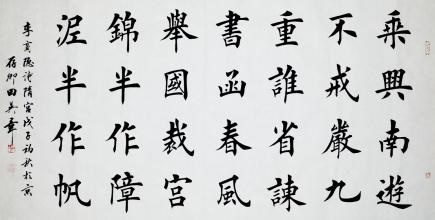 乘興南遊
不戒嚴九
重誰省諫
書函春風
舉國裁宮
錦半作障
泥半作帆
李商隱詩隋宮戊子初秋於京
存卿田英章